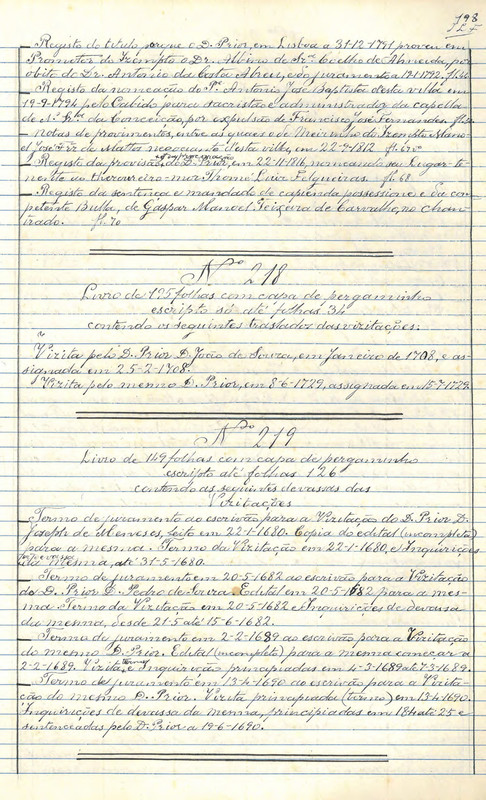 198
_ Registo do titulo porque o D. Prior, em Lisboa a 31-12-1791 proveu em
Promotor do Izempto o Dr. Albino de Frª Coelho de Almeida, por
obito do Dr. Antonio da Costa Abreu, e do juramento a 19-1-1792. fl.
_ Registo da nomeação do Pe Antonio José Baptista desta villa em
19-9-1794 pelo Cabido para sacristão e administrador da capella
de N. Snra da Conceição, por expulsão de Francisco José Fernandes. fl.
_ notas de provimentos, entre as quaes o de Meirinho do Izempto Mano-
el José de Mattos negociante desta villa, em 22-9-1812 fl.
_ Registo da provisão, do D. Prior, em 22-11-1816, nomeando seu Lugar-te-
nente ao Thesoureiro-mor Thomé Luiz Felgueiras. fl. 68
_ Registo da sentença e mandado de capienda possessione e da com-
petente Bulla, de Gaspar Manoel Teixeira de Carvalho, no Chan-
trado. fl. 70
Nº 218
Livro de 195 folhas com capa de pergaminho
escripto só até folhas 34
contendo os seguintes traslados das visitações:
_ Vizita pelo D. Prior D. João de Sousa, em Janeiro de 1708, e as-
signada em 25-2-1708.
_ Vizita pelo mesmo D. Prior, em 8-6-1729, assignada em 15-7-1729.
Nº 219
Livro de 149 folhas com capa de pergaminho
escripto até folhas 126
contendo as seguintes devassas das
Vizitações
_ Termo de juramento ao escrivão para a Vizitação do D. Prior D.
Joseph de Menezes, feito em 22-1-1680. Copia do edital (incompleto)
para a mesma. Termo da Vizitação em 22-1-1680, e Inquirições
da mesma, até 31-5-1680.
_ Termo de juramento em 20-5-1682 ao escrivão para a Vizitação
do D. Prior D. Pedro de Sousa. Edital em 20-5-1682 para a mes-
ma. Termo da Vizitação em 20-5-1682 e Inquirições de devassa
da mesma, desde 21-5 até 15-6-1682.
_ Termo de juramento em 2-2-1689 ao escrivão para a Vizitação
do mesmo D. Prior. Edital (incompleto) para a mesma começar a
2-2-1689. Vizita (termo) e Inquirição principiadas em 4-3-1689 até 7-3-1689.
_ Termo de juramento em 13-4-1690 ao escrivão para a Vizita-
ção do mesmo D. Prior. Vizita principiada (termo) em 13-4-1690.
Inquirições de devassa da mesma, principiadas em 18-4 até 25 e
sentenceadas pelo D. Prior a 19-6-1690.